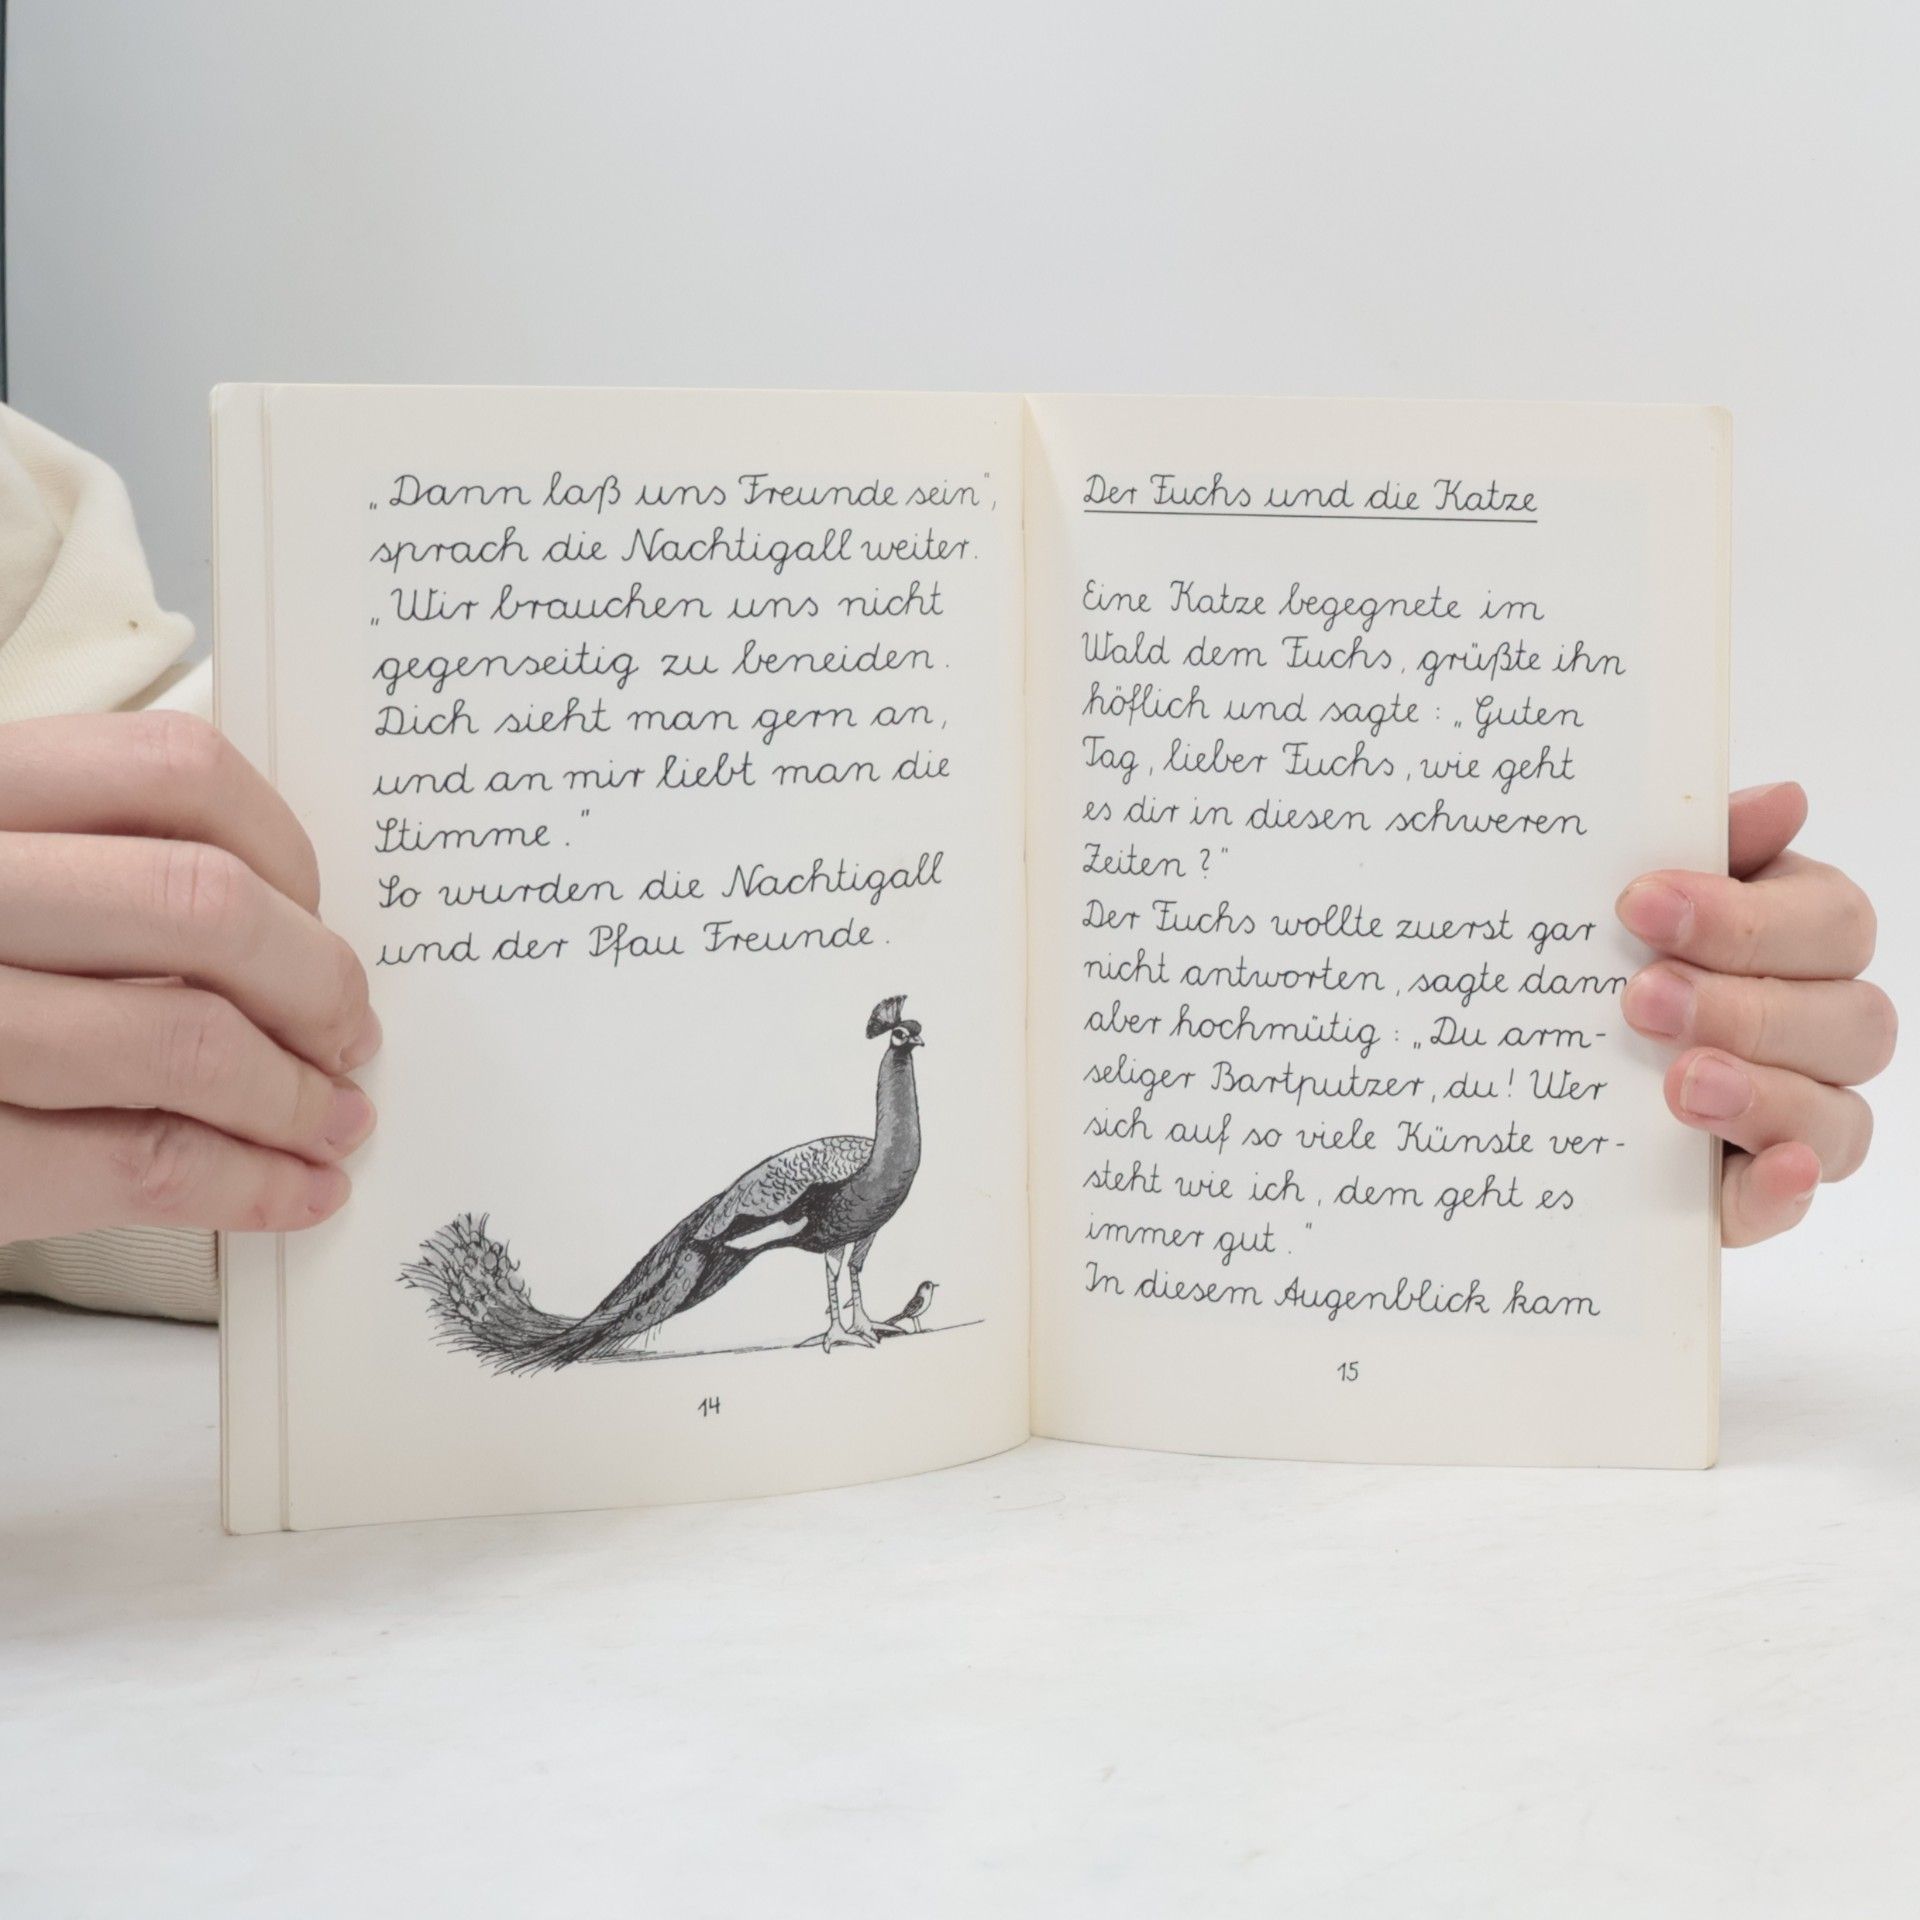 „Dann laß uns Freunde sein",
sprach die Nachtigall weiter.
„Wir brauchen uns nicht
gegenseitig zu beneiden.
Dich sieht man gern an,
und an mir liebt man die
Stimme."
So wurden die Nachtigall
und der Pfau Freunde.
14
Der Fuchs und die Katze
Eine Katze begegnete im
Wald dem Fuchs, grüßte ihn
höflich und sagte: „Guten
Tag, lieber Fuchs, wie geht
es dir in diesen schweren
Zeiten?"
Der Fuchs wollte zuerst gar
nicht antworten, sagte dann
aber hochmütig: „Du arm-
seliger Bartputzer, du! Wer
sich auf so viele Künste ver-
steht wie ich, dem geht es
immer gut."
In diesem Augenblick kam
15